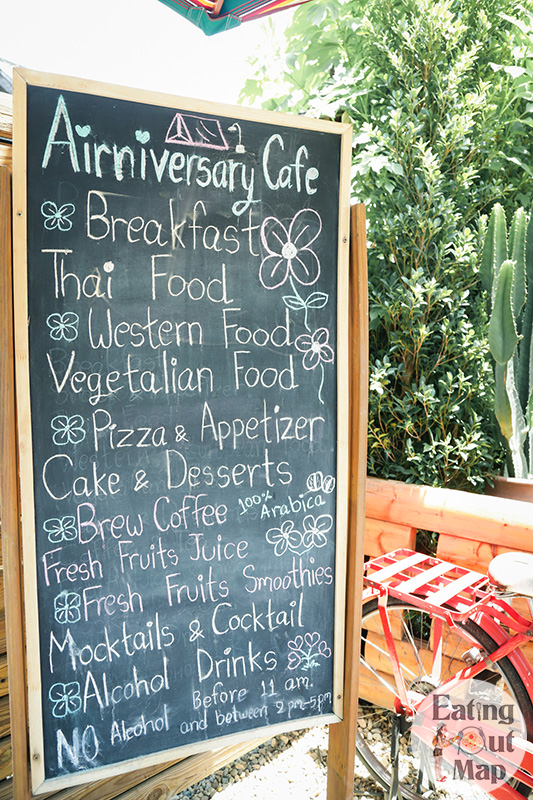 Airniversary Cafe
Breakfast
Thai Food
Western Food
Vegetalian Food
Pizza & Appetizer
Cake & Desserts
Brew Coffee 100% Arabica
Fresh Fruits Juice
Fresh Fruits Smoothies
Mocktails & Cocktail
Alcohol Drinks
NO Alcohol Before 11 am.
and between 2 pm-5pm
Eating Out Map